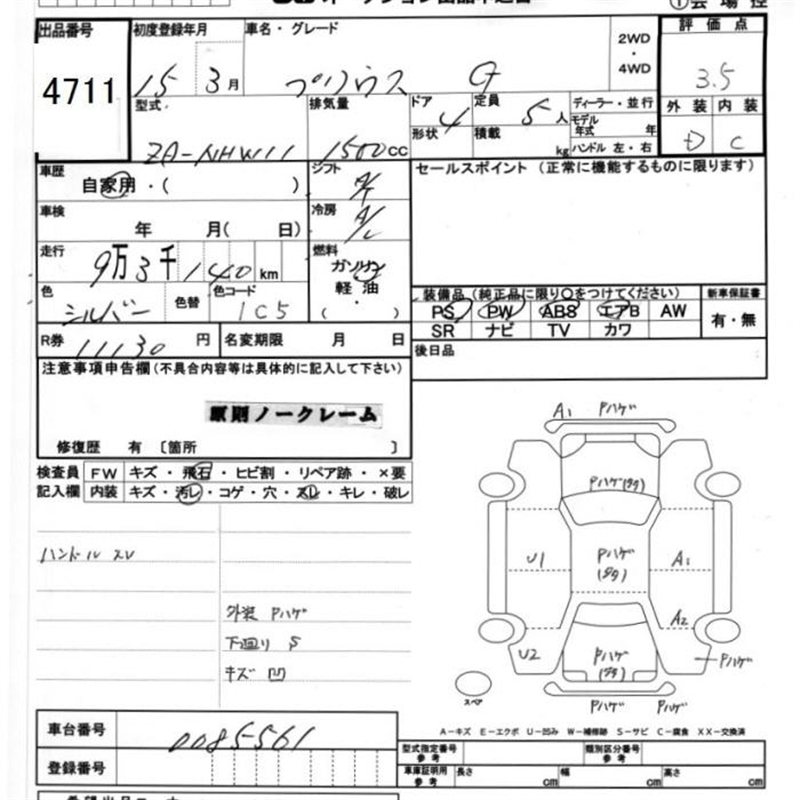 出品番号 初度登録年月 車名・グレード 2WD・4WD 評価点
4711 15 3月 プリウス G 3.5
型式 排気量 ドア形状 4 定員 5人 積載 kg ディーラー・並行 モデル年式 年 ハンドル 左・右 外装 内装
ZA-NHW11 1500cc D C
車歴 自家用・( ) シフト A/T セールスポイント (正常に機能するものに限ります)
車検 年 月( 日) 冷房 A/C
走行 9万3千140km 燃料 ガソリン 軽油 ・( )
色 シルバー 色替 色コード 1C5 装備品(純正品に限り○をつけてください) 新車保証書
PS PW ABS エアB AW 有・無
SR ナビ TV カワ
R券 11130円 名変期限 月 日 後日品
注意事項申告欄(不具合内容等は具体的に記入して下さい)
原則ノークレーム
修復歴 有 〔箇所 〕
検査員 FW キズ・飛石・ヒビ割・リペア跡・×要
記入欄 内装 キズ・汚レ・コゲ・穴・スレ・キレ・破レ
A1 Pハゲ
Pハゲ(タタ)
ハンドル スレ
U1 Pハゲ(タタ) A1
外装 Pハゲ
A2
下回り S
U2 Pハゲ(タタ) Pハゲ
キズ 凹
スペア Pハゲ Pハゲ
A-キズ E-エクボ U-凹み W-補修跡 S-サビ C-腐食 XX-交換済
車台番号 0085561
型式指定番号 参考 類別区分番号 参考
登録番号
車庫証明用 参考 長さ cm 幅 cm 高さ cm